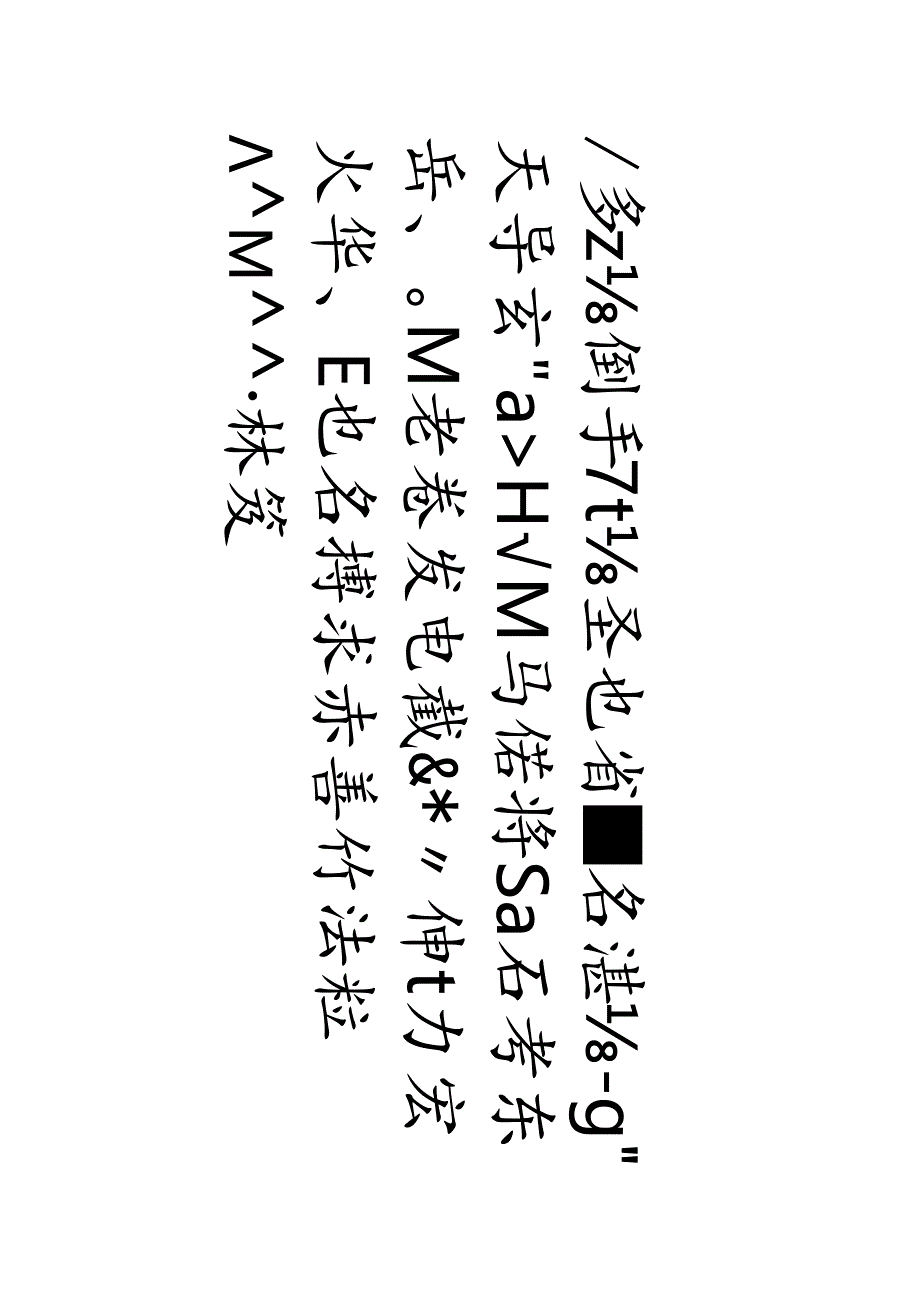 /多z⅛倒手7t⅛圣也省■名湛⅛-g"
天导玄"a>H√M马偌将Sa石考东
岳、。M老卷发电截&*〃伸t力宏
火华、E也名搏求赤善竹法粒
^^M^^.林笈